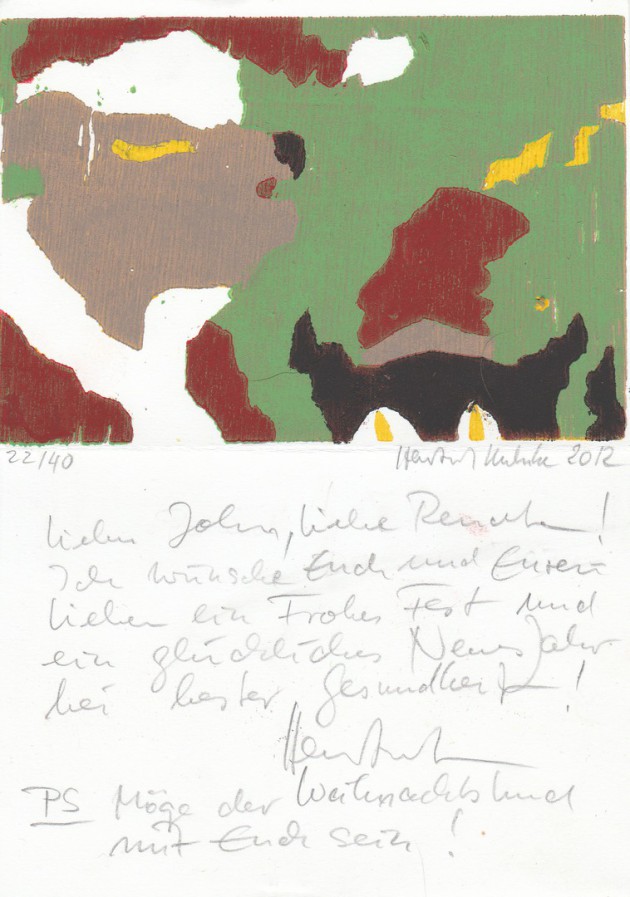 22/40 2012
Lieber John, liebe Renate!
Ich wünsche Euch und Euren
Lieben ein Frohes Fest und
ein glückliches Neues Jahr
bei bester Gesundheit!
PS Möge der Weihnachtshund
mit Euch sein!